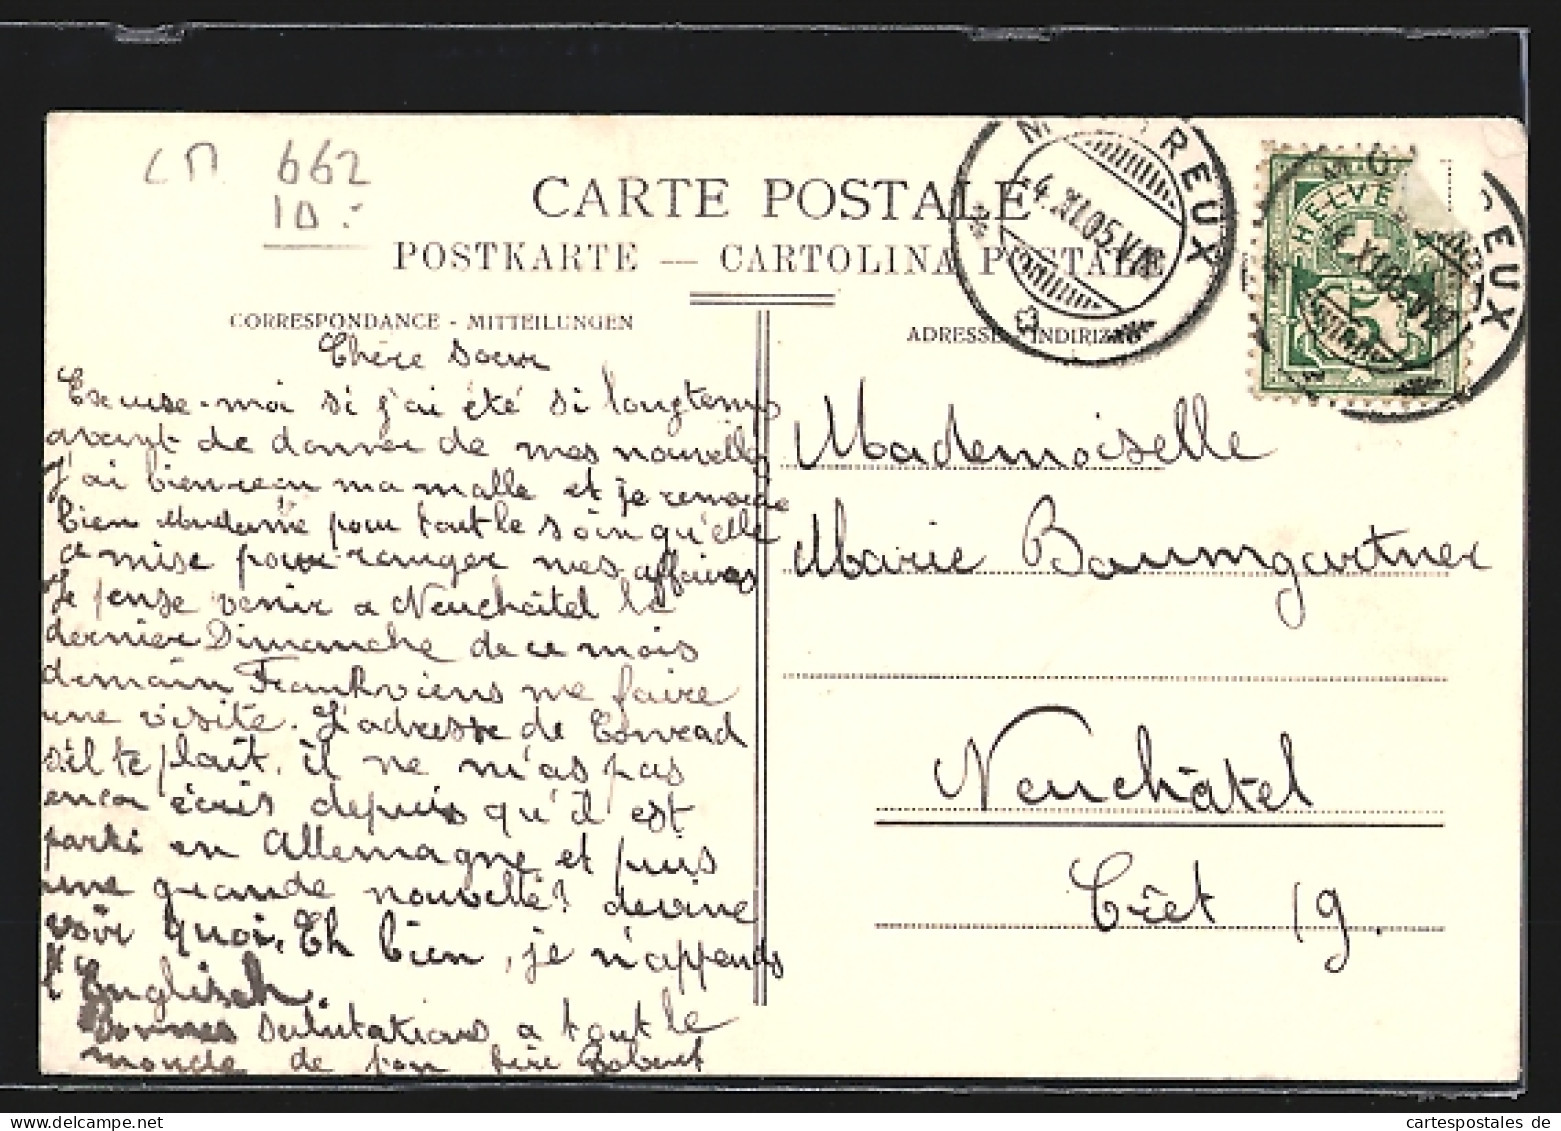 CM 662
10.-
CARTE POSTALE
POSTKARTE — CARTOLINA POSTALE
CORRESPONDANCE - MITTEILUNGEN
ADRESSE INDIRIZZO
MONTREUX
4.XI.05.VII
HELVETIA
5
MONTREUX
XI.05.VII
Chère soeur
Excuse-moi si j'ai été si longtemps
avangt de donner de mes nouvelles
J'ai bien recu ma malle et je remercie
bien Madame pour tout le soin qu'elle
a mise pour ranger mes affaires
Je pense venir a Neuchâtel le
dernier Dimanche de ce mois
demain Frank viens me faire
une visite. L'adresse de Conrad
s'il te plait, il ne m'as pas
encor écris depuis qu'il est
parti en Allemagne et puis
une grande nouvelle? devine
voir quoi. Eh bien, je n'apprends
l'Englisch.
Bonnes salutations a tout le
monde de ton frère Robert
Mademoiselle
Marie Baumgartner
Neuchâtel
Crêt 19.
cartespostales de